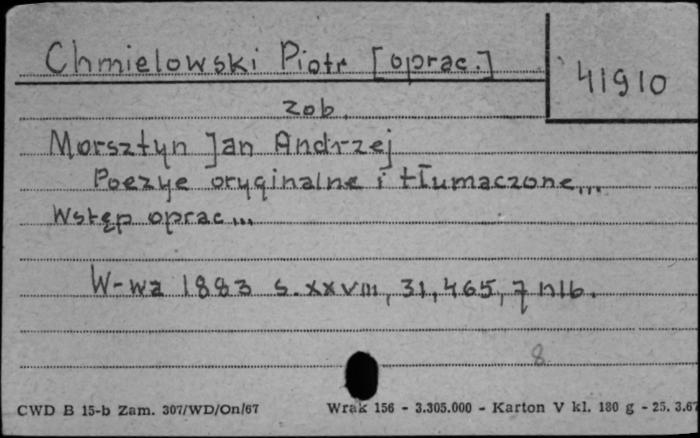 Chmielowski Piotr [oprac.]
41910
zob.
Morsztyn Jan Andrzej
Poezye oryginalne i tłumaczone...
Wstęp oprac...
W-wa 1883 s. XXVIII, 31, 465, 7 nlb.
8
CWD B 15-b Zam. 307/WD/On/67 Wrak 156 - 3.305.000 - Karton V kl. 180 g - 25. 3.67